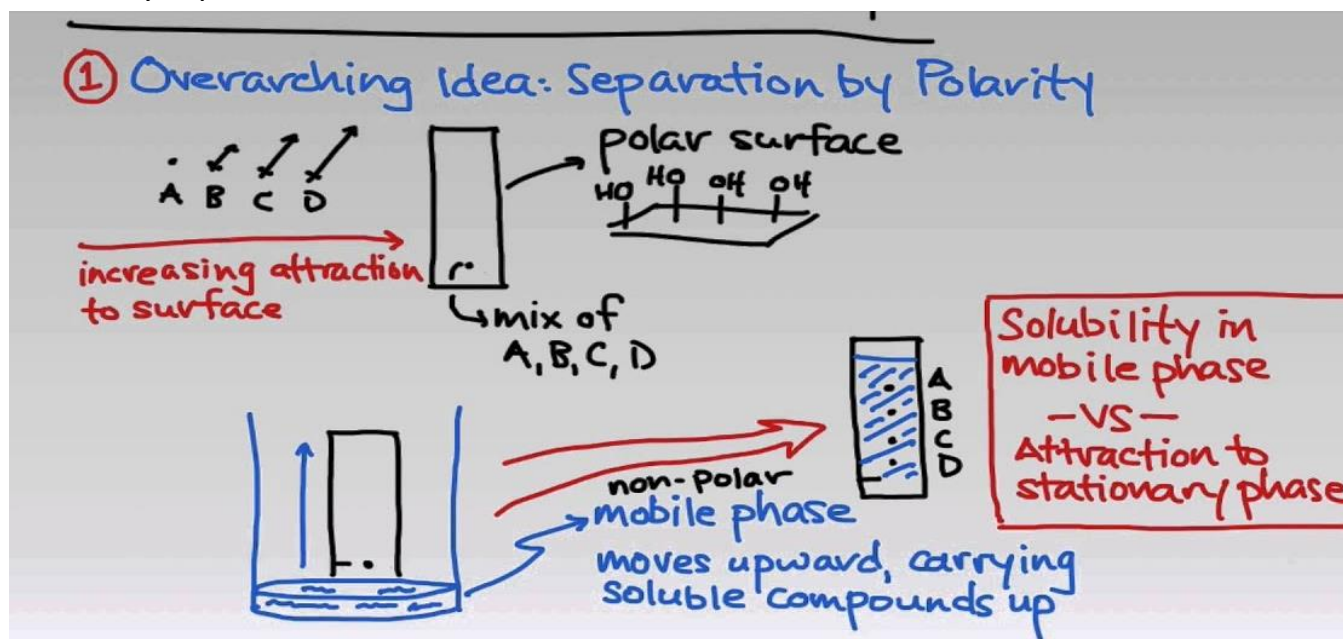 ① Overarching Idea: Separation by Polarity
A B C D
polar surface
HO HO OH OH
increasing attraction
to surface
mix of
A, B, C, D
A
B
C
D
Solubility in
mobile phase
—VS—
Attraction to
stationary phase
non-polar
mobile phase
moves upward, carrying
soluble compounds up